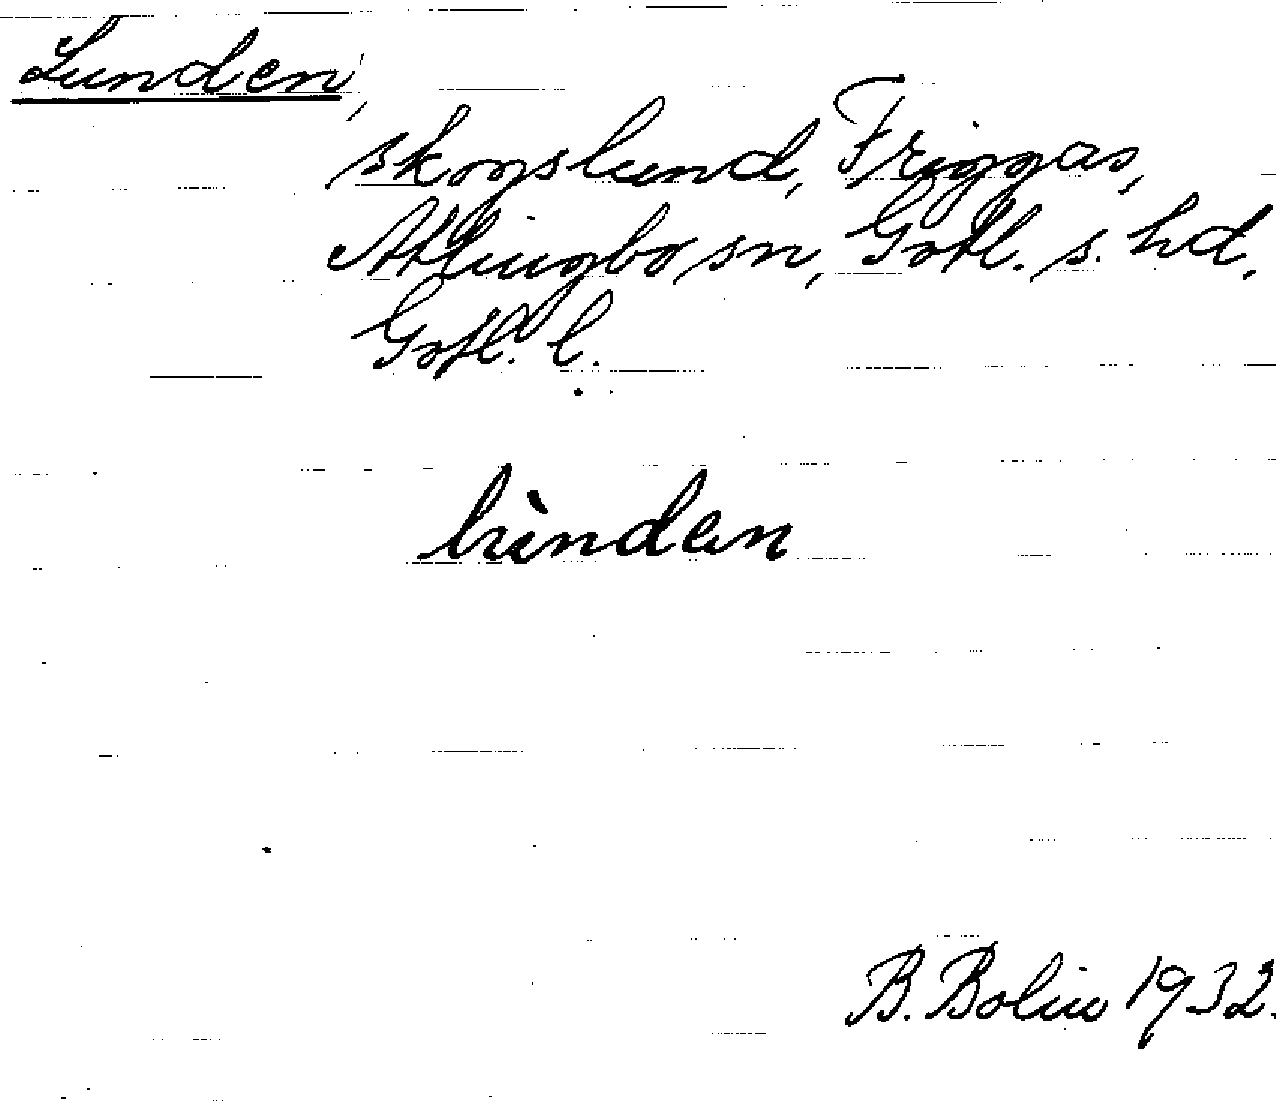 Lunden,
skogslund, Friggas,
Atlingbo sn, Gotl. s. hd,
Gotl. l.
B. Bolin 1932.